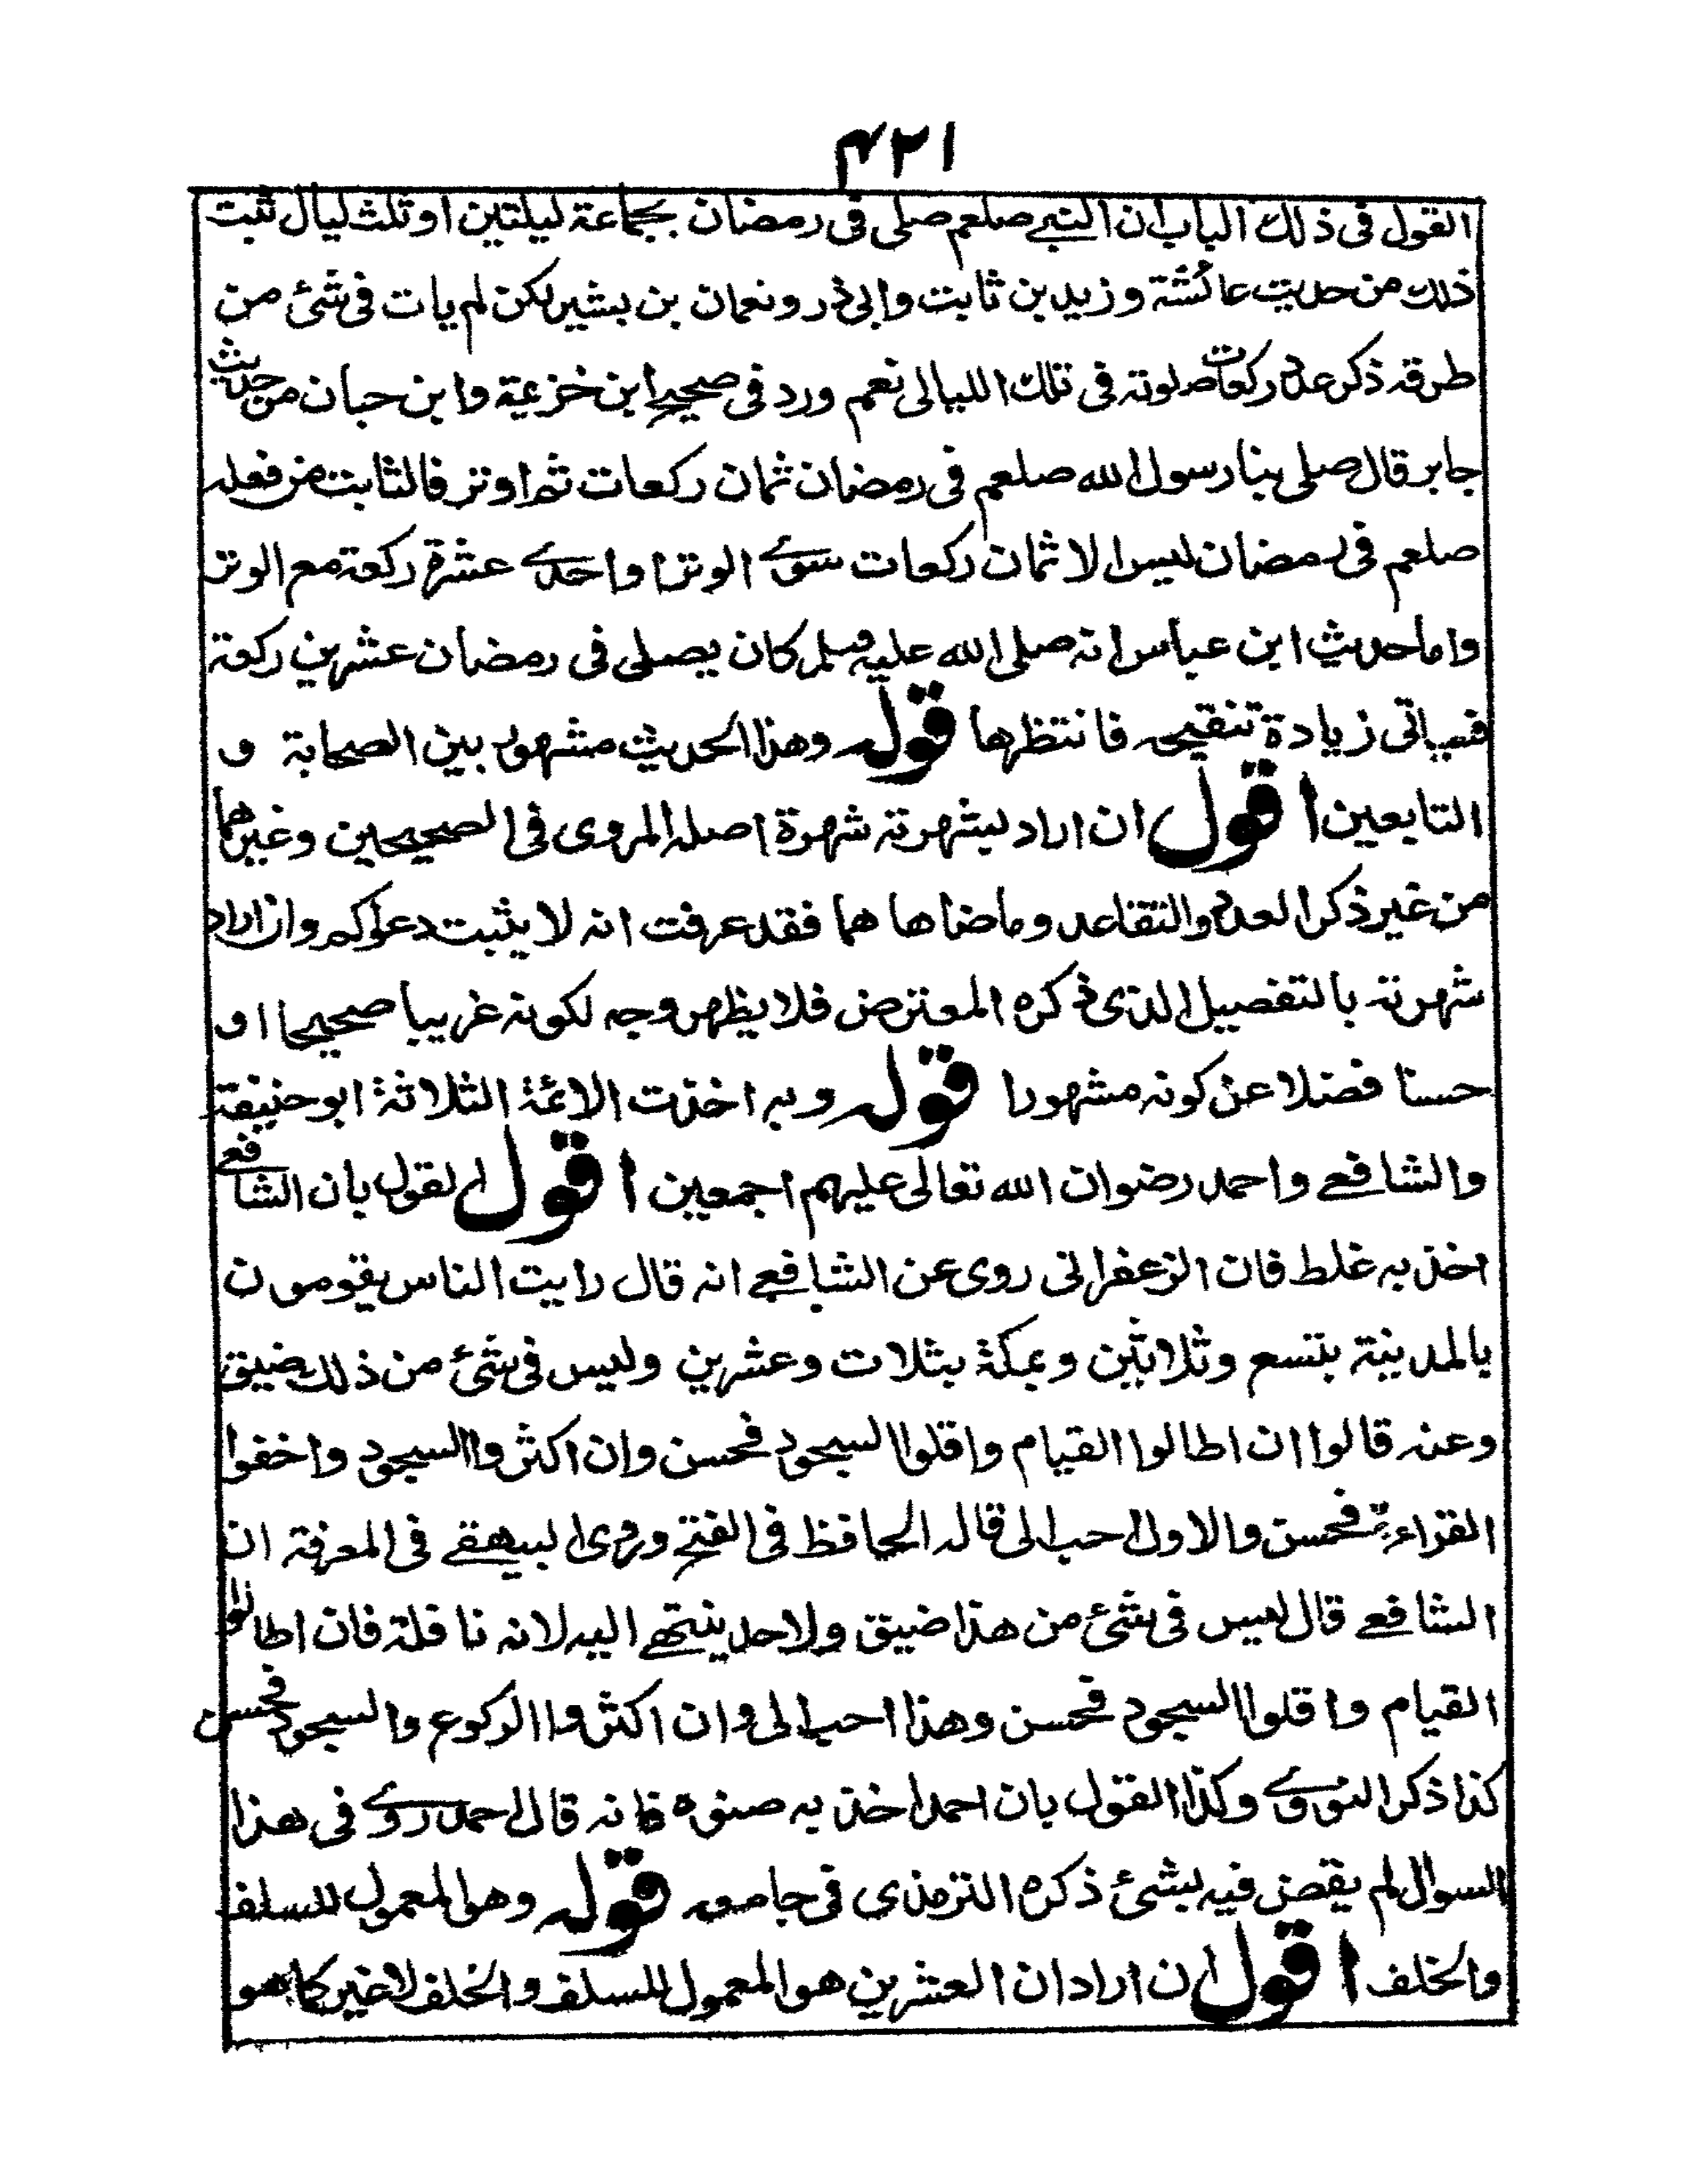 ۴۲۱
القول فى ذلك الباب ان النبے صلعم صلى فى رمضان بجماعة ليلتين او ثلث ليال ثبت
ذلك من حديث عائشة و زيد بن ثابت وابى ذر و نعمان بن بشير لكن لم يات فى شئ من
طرقه ذكر عدد ركعات صلوته فى تلك الليالى نعم ورد فى صحيح ابن خزيمة وابن حبان من حديث
جابر قال صلى بنا رسول الله صلعم فى رمضان ثمان ركعات ثم اوتر فالثابت من فعله
صلعم فى رمضان ليس الا ثمان ركعات سوے الوتر او احدے عشرة ركعة مع الوتر
واما حديث ابن عباس انه صلى الله عليه وسلم كان يصلى فى رمضان عشرين ركعة
فسياتى زيادة تنقيحه فانتظرها قوله وهذا الحديث مشهور بين الصحابة و
التابعين اقول ان اراد بشهرته شهرة اصله المروى فى الصحيحين وغيرهما
من غير ذكر العدد والتقاعد وما ضاها هما فقد عرفت انه لا يثبت دعواكم وان اراد
شهرته بالتفصيل الذى ذكره المعترض فلا يظهر وجه لكونه غريبا صحيحا او
حسنا فضلا عن كونه مشهورا قوله وبه اخذت الائمة الثلاثة ابو حنيفة
والشافعے واحمد رضوان الله تعالى عليهم اجمعين اقول القول بان الشافعے
اخذ به غلط فان الزعفرانى روى عن الشافعے انه قال رايت الناس يقومون
بالمدينة بتسع وثلاثين وبمكة بثلاث وعشرين وليس فى شئ من ذلك ضيق
وعنه قالوا ان اطالوا القيام واقلوا السجود فحسن وان اكثروا السجود واخفوا
القراءة فحسن والاول احب الى قاله الحافظ فى الفتح وروى البيهقے فى المعرفة ان
الشافعے قال ليس فى شئ من هذا ضيق ولاحد ينتهے اليه لانه نافلة فان اطالوا
القيام واقلوا السجود فحسن وهذا احب الى وان اكثروا الركوع والسجود فحسن
كذا ذكر النووے وكذا القول بان احمد اخذ به صنوه فانه قال احمد روے فى هذا
السوال لم يقض فيه بشئ ذكره الترمذى فى جامعه قوله وهو المعمول للسلف
والخلف اقول ان اراد ان العشرين هو المعمول للسلف والخلف لاغير كما هو